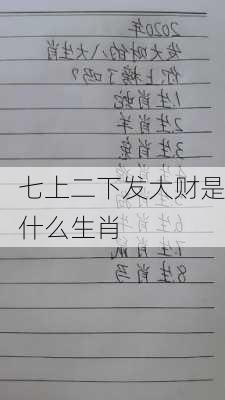 2020年
发大财的八大生肖
你上榜了吗?
1.生肖蛇
2.生肖羊
3.生肖
七上二下发大财是
什么生肖
6.生肖
7.生肖鼠
8.生肖马